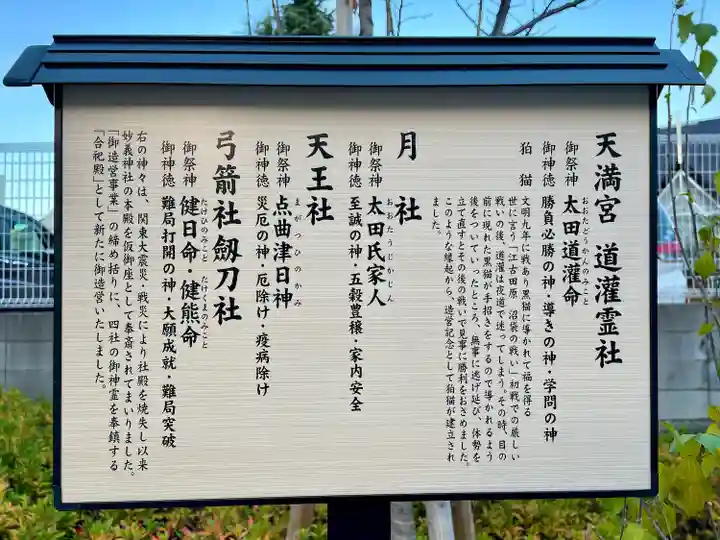 天満宮 道灌霊社
御祭神 太田道灌命
おおたどうかんのみこと
御神徳 勝負必勝の神・導きの神・学問の神
狛猫 文明九年に戦あり黒猫に導かれて福を得る
世に言う「江古田原 沼袋の戦い」初戦での厳しい
戦いの後、道灌は夜道で迷ってしまう。その時、目の
前に現れた黒猫が手招きをするので導かれるよう
後をついていったところ、無事に逃げ延び、体勢を
立て直すとその後の戦いで見事に勝利をおさめました。
このような縁起から、造営記念として狛猫が建立され
ました。
月社
御祭神 太田氏家人
おおたうじかじん
御神徳 至誠の神・五穀豊穣・家内安全
天王社
御祭神 点曲津日神
まがつひのかみ
御神徳 災厄の神・厄除け・疫病除け
弓箭社劔刀社
御祭神 健日命・健熊命
たけひのみこと たけくまのみこと
御神徳 難局打開の神・大願成就・難局突破
右の神々は、関東大震災・戦災により社殿を焼失し以来
妙義神社の本殿を仮御座として奉斎されてまいりました。
「御造営事業」の締め括りに、四社の御神霊を奉鎮する
『合祀殿』として新たに御造営いたしました。